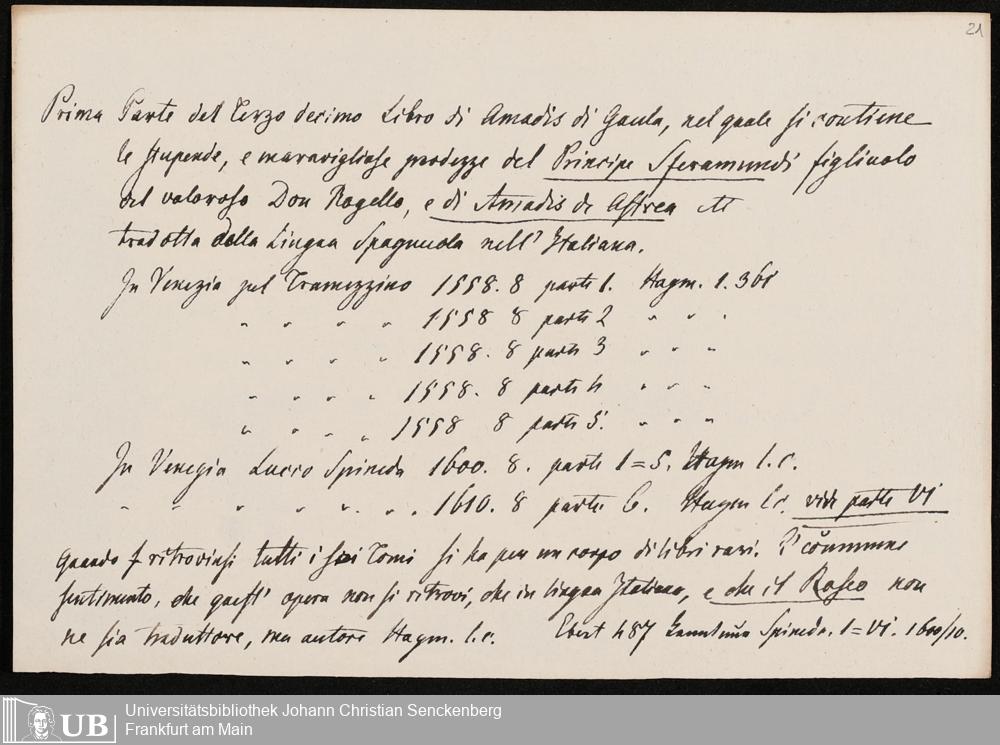 21
Prima Parte del Terzo decimo Libro di Amadis di Gaula, nel quale si contiene
le stupende, e maravigliose prodezze del Principe Sferamundi figliuolo
del valoroso Don Rogello, e di Amadis di Astrea
tradotta della Lingua Spagnuola nell' Italiana.
In Venezia pel Tramezzino 1558. 8 parte 1. Haym. 1. 361
" " " " 1558 8 parte 2 " " "
" " " " 1558. 8 parte 3 " " "
" " " " 1558. 8 parte 4 " " "
" " " " 1558 8 parte 5. " " "
In Venezia Lucio Spineda 1600. 8. parte 1=5. Haym l. c.
" " " " " " " 1610. 8 parte 6. Haym l. c. vide parte VI
Quando si ritrovinsi tutti i sei Tomi si ha per un corpo di libri rari. È commune
sentimento, che quest' opera non si ritrovi, che in lingua Italiana, e che il Roseo non
ne sia traduttore, ma autore Haym. l. c. Ebert 487 Spineda. 1=VI. 1600/10.
UB
Universitätsbibliothek Johann Christian Senckenberg
Frankfurt am Main